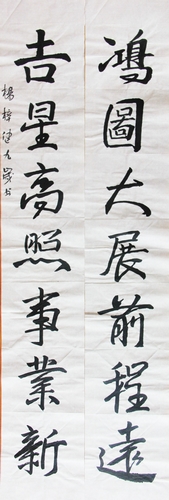 鴻圖大展前程遠
吉星高照事業新